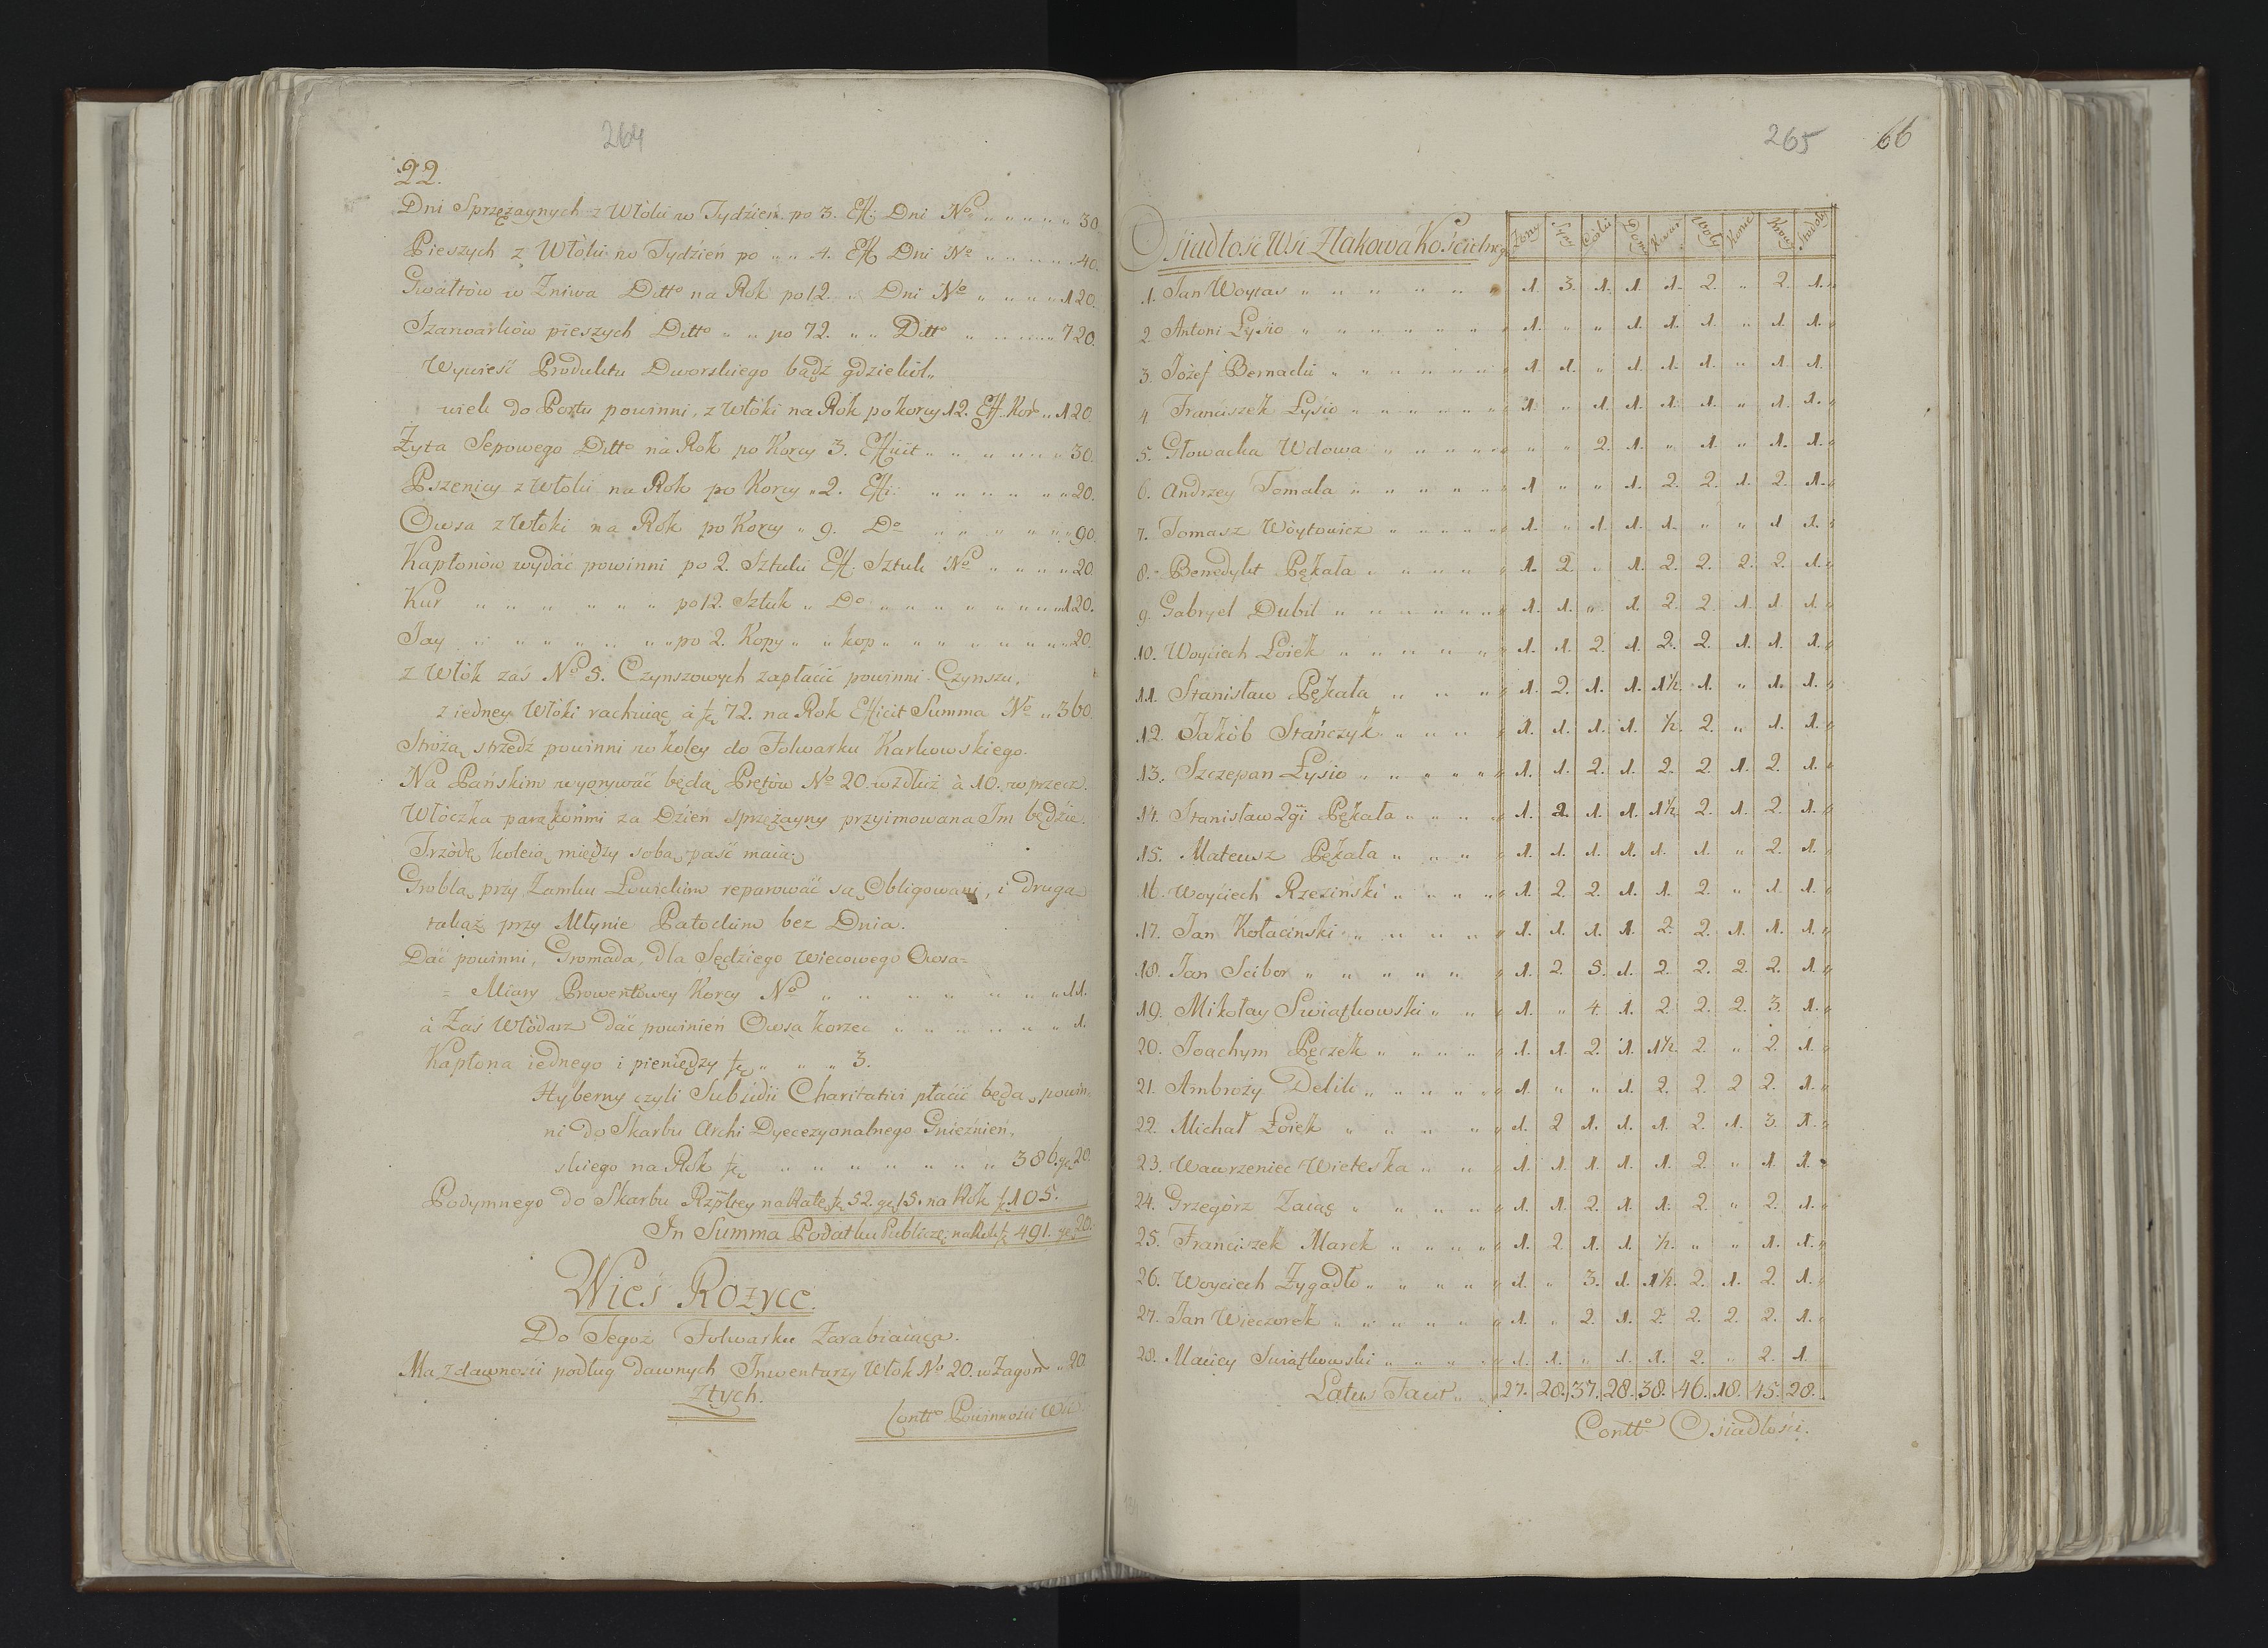 264
22.
Dni Sprzężaynych z Włóki w Tydzień po 3. Eff: Dni No „ „ „ „ „ 30.
Pieszych z Włóki w Tydzień po „ „ 4. Eff Dni No „ „ „ „ 40.
Gwałtów w Żniwa Ditto na Rok po 12. „ Dni No „ „ „ „ 120.
Szarwarków pieszych Ditto „ „ po 72. „ „ Ditto „ „ „ „ 720.
Wywieść Produktu Dworskiego bądź gdziekol„
wiek do Portu powinni, z Włóki na Rok po korcy 12. Eff. Kor: „ 120
Żyta Sepowego Ditto na Rok po Korcy 3. Efficit „ „ „ „ „ „ 30.
Pszenicy z Włóki na Rok po Korcy „ 2. Effi: „ „ „ „ „ „ 20.
Owsa z Włóki na Rok po Korcy „ 9. Do „ „ „ „ „ „ 90.
Kapłonów wydać powinni po 2. Sztuki Eff: Sztuk No „ „ „ „ 20.
Kur „ „ „ „ „ „ po 12. Sztuk „ Do „ „ „ „ „ „ „ 120.
Jay „ „ „ „ „ „ „ po 2. Kopy „ „ kop „ „ „ „ „ „ „ 20.
z Włók zaś No 5. Czynszowych zapłacić powinni Czynszu,
z iedney Włóki rachuiąc à zł 72. na Rok Efficit Summa No „ 360.
Stróżą strzedź powinni w koley do Folwarku Karkowskiego.
Na Pańskim wyorywać będą Prętów No 20. wzdłuż à 10. w przecz.
Włóczka parą końmi za Dzień sprzężayny przyimowana Im będzie.
Trzodę koleią między sobą paść maią.
Groblą przy Zamku Łowickim reparować są Obligowani, i drugą
takąż przy Młynie Patockim bez Dnia.
Dać powinni, Gromada, dla Sędziego Wiecowego Owsa=
= Miary Prowentowey Korcy No „ „ „ „ „ „ „ 11.
à Zaś Włódarz dać powinień Owsa korzec „ „ „ „ „ „ 1.
Kapłona iednego i pieniędzy zł „ „ „ 3.
Hyberny czyli Subsidii Charitativi płacić będą powin„
ni do Skarbu Archi Dyecezyonalnego Gnieznień„
skiego na Rok zł „ „ „ „ „ „ „ „ 386. gr 20.
Podymnego do Skarbu Rzpltey na Ratę zł 52. gr 15. na Rok zł 105.
In Summa Podatku Publicz: na Rok zł 491. gr 20.
Wieś Rożyce.
Do Tegoż Folwarku Zarabiaiąca.
Ma z dawności podług dawnych Inwentarzy Włok No 20. w Zagon „ 20.
złych.
Contto Powinności Wsi
265 66
Osiadłość Wsi Złakowa Kościelnego Żony Syny Córki Domy Kwart Woły Konie Krowy Stodoły
1. Jan Woytas „ „ „ „ „ 1. 3. 1. 1. 1. 2. „ 2. 1.
2. Antoni Łysio „ „ „ „ „ 1. „ „ 1. 1. 1. „ 1. 1.
3. Jozef Bernacki „ „ „ „ „ 1. 1. „ 1. 1. 1. „ 1. 1.
4. Franciszek Łysio „ „ „ „ „ 1. „ 1. 1. 1. 1. „ 1. 1.
5. Głowacka Wdowa „ „ „ „ „ „ „ 2. 1. „ 1. „ 1. 1.
6. Andrzey Tomala „ „ „ „ „ 1 „ „ 1. 2. 2. 1. 2. 1.
7. Tomasz Wóytowicz „ „ „ „ „ 1. „ 1. 1. 1. „ „ 1 1.
8. Benedykt Pękala „ „ „ „ 1. 2. „ 1. 2. 2. 2. 2. 1.
9. Gabryel Dubil „ „ „ „ „ 1. 1. „ 1. 2. 2. 1. 1. 1.
10. Woyciech Łoiek „ „ „ „ „ 1. 1. 2. 1. 2. 2. 1. 1. 1.
11. Stanisław Pękala „ „ „ „ 1. 2. 1. 1. 1½. 1. „ 1. 1.
12. Jakób Stańczyk „ „ „ „ 1. 1. 1. 1. ½. 2. „ 1. 1.
13. Szczepan Łysio „ „ „ „ „ 1. 1. 2. 1. 2. 2. 1. 2. 1.
14. Stanisław 2gi Pękala „ „ „ „ 1. 2. 1. 1. 1½. 2. 1. 2. 1.
15. Mateusz Pękala „ „ „ 1. 1. 1. 1. 1. 1. „ 2. 1.
16. Woyciech Rzezinski „ „ „ „ 1. 2. 2. 1. 1. 2. „ 1. 1.
17. Jan Kołacinski „ „ „ „ 1. 1. 1. 1. 2. 2. 1. 1. 1.
18. Jan Scibor „ „ „ „ „ 1. 2. 5. 1. 2. 2. 2. 2. 1.
19. Mikołay Swiątkowski „ „ 1. „ 4. 1. 2. 2. 2. 3. 1.
20. Joachym Pęczek „ „ „ „ 1. 1. 2. 1. 1½. 2. „ 2. 1.
21. Ambroży Delik „ „ „ „ 1. „ „ 1. 2. 2. 2 2. 1.
22. Michał Łoiek „ „ „ „ 1. 2 1. 1. 1. 2. 1. 3. 1.
23. Wawrzeniec Wieteska „ „ 1. 1. 1. 1. 1. 2. „ 1. 1.
24. Grzegórz Zaiąc „ „ „ „ 1. 1. 2. 1. 1. 2. „ 2. 1.
25. Franciszek Marek „ „ „ „ 1. 2. 1. 1. ½. „ „ 1. 1.
26. Woyciech Zygadło „ „ „ „ 1. „ 3. 1. 1½. 2. 1. 2. 1.
27. Jan Wieczorek „ „ „ „ „ 1. „ 2. 1. 2. 2. 2. 2. 1.
28. Maciey Swiątkowski „ „ „ „ 1. 1. „ 1. 1. 2. „ 2. 1.
Latus Facit „ 27. 28. 37. 28. 38. 46. 18. 45. 28.
Contto Osiadłości.